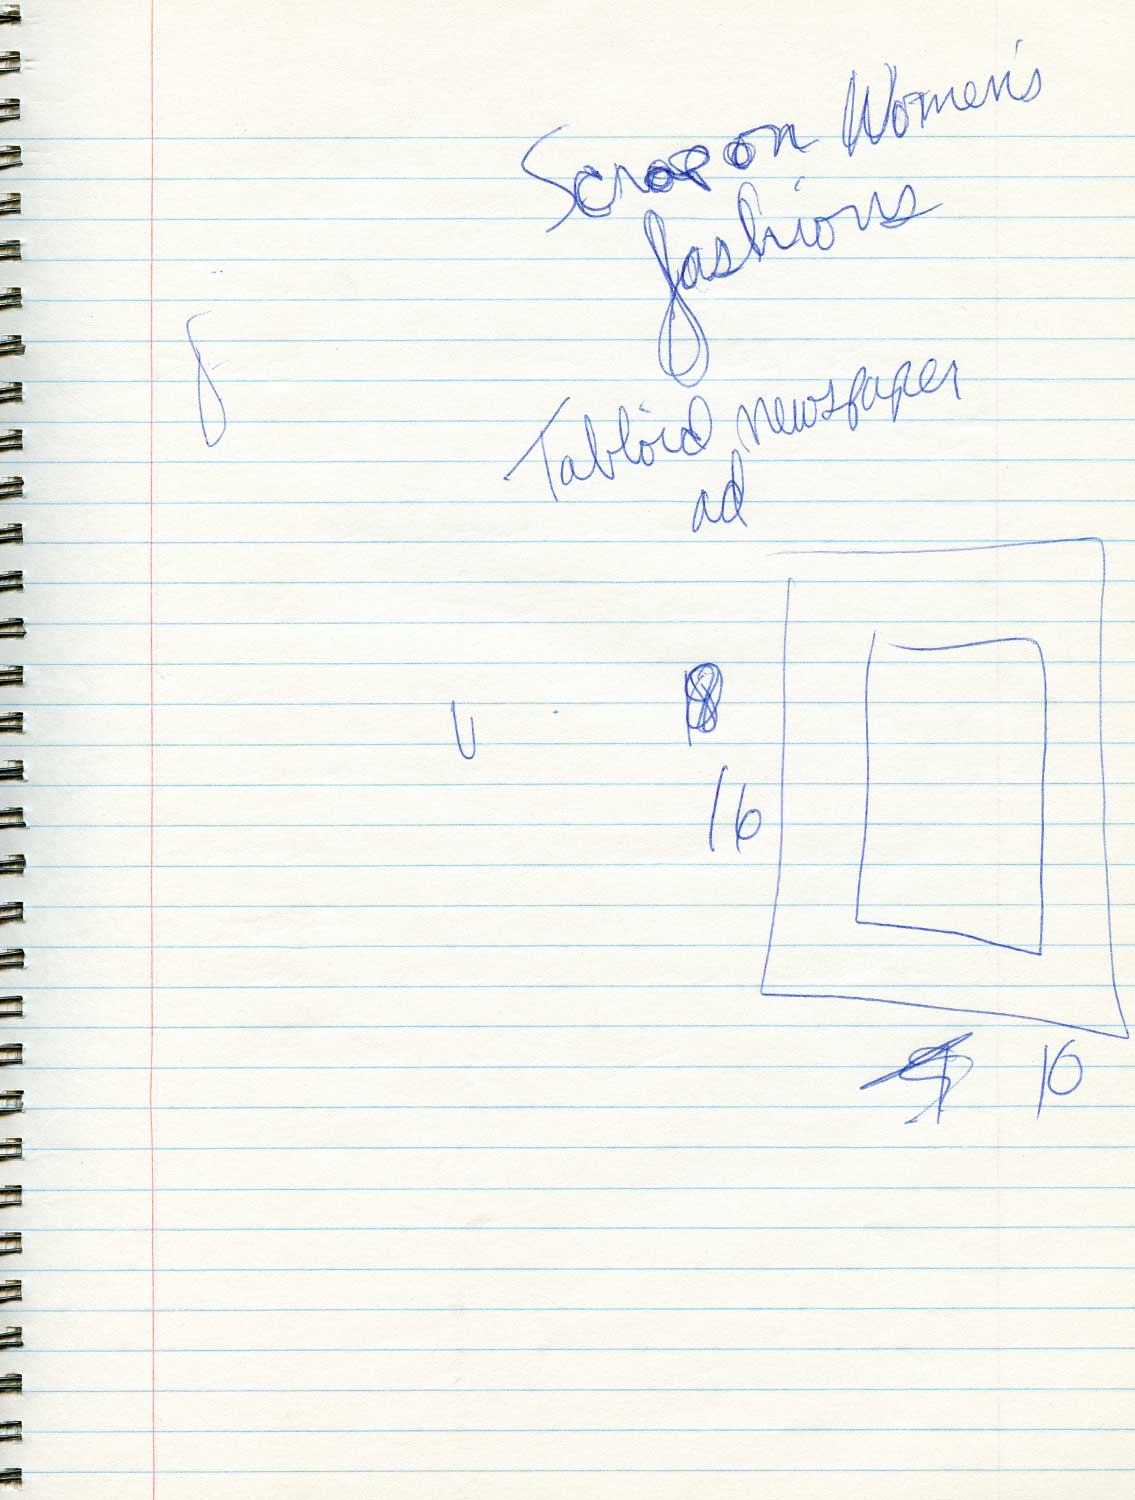 Scrap on Women's
fashions
Tabloid newspaper
ad
18
16
10